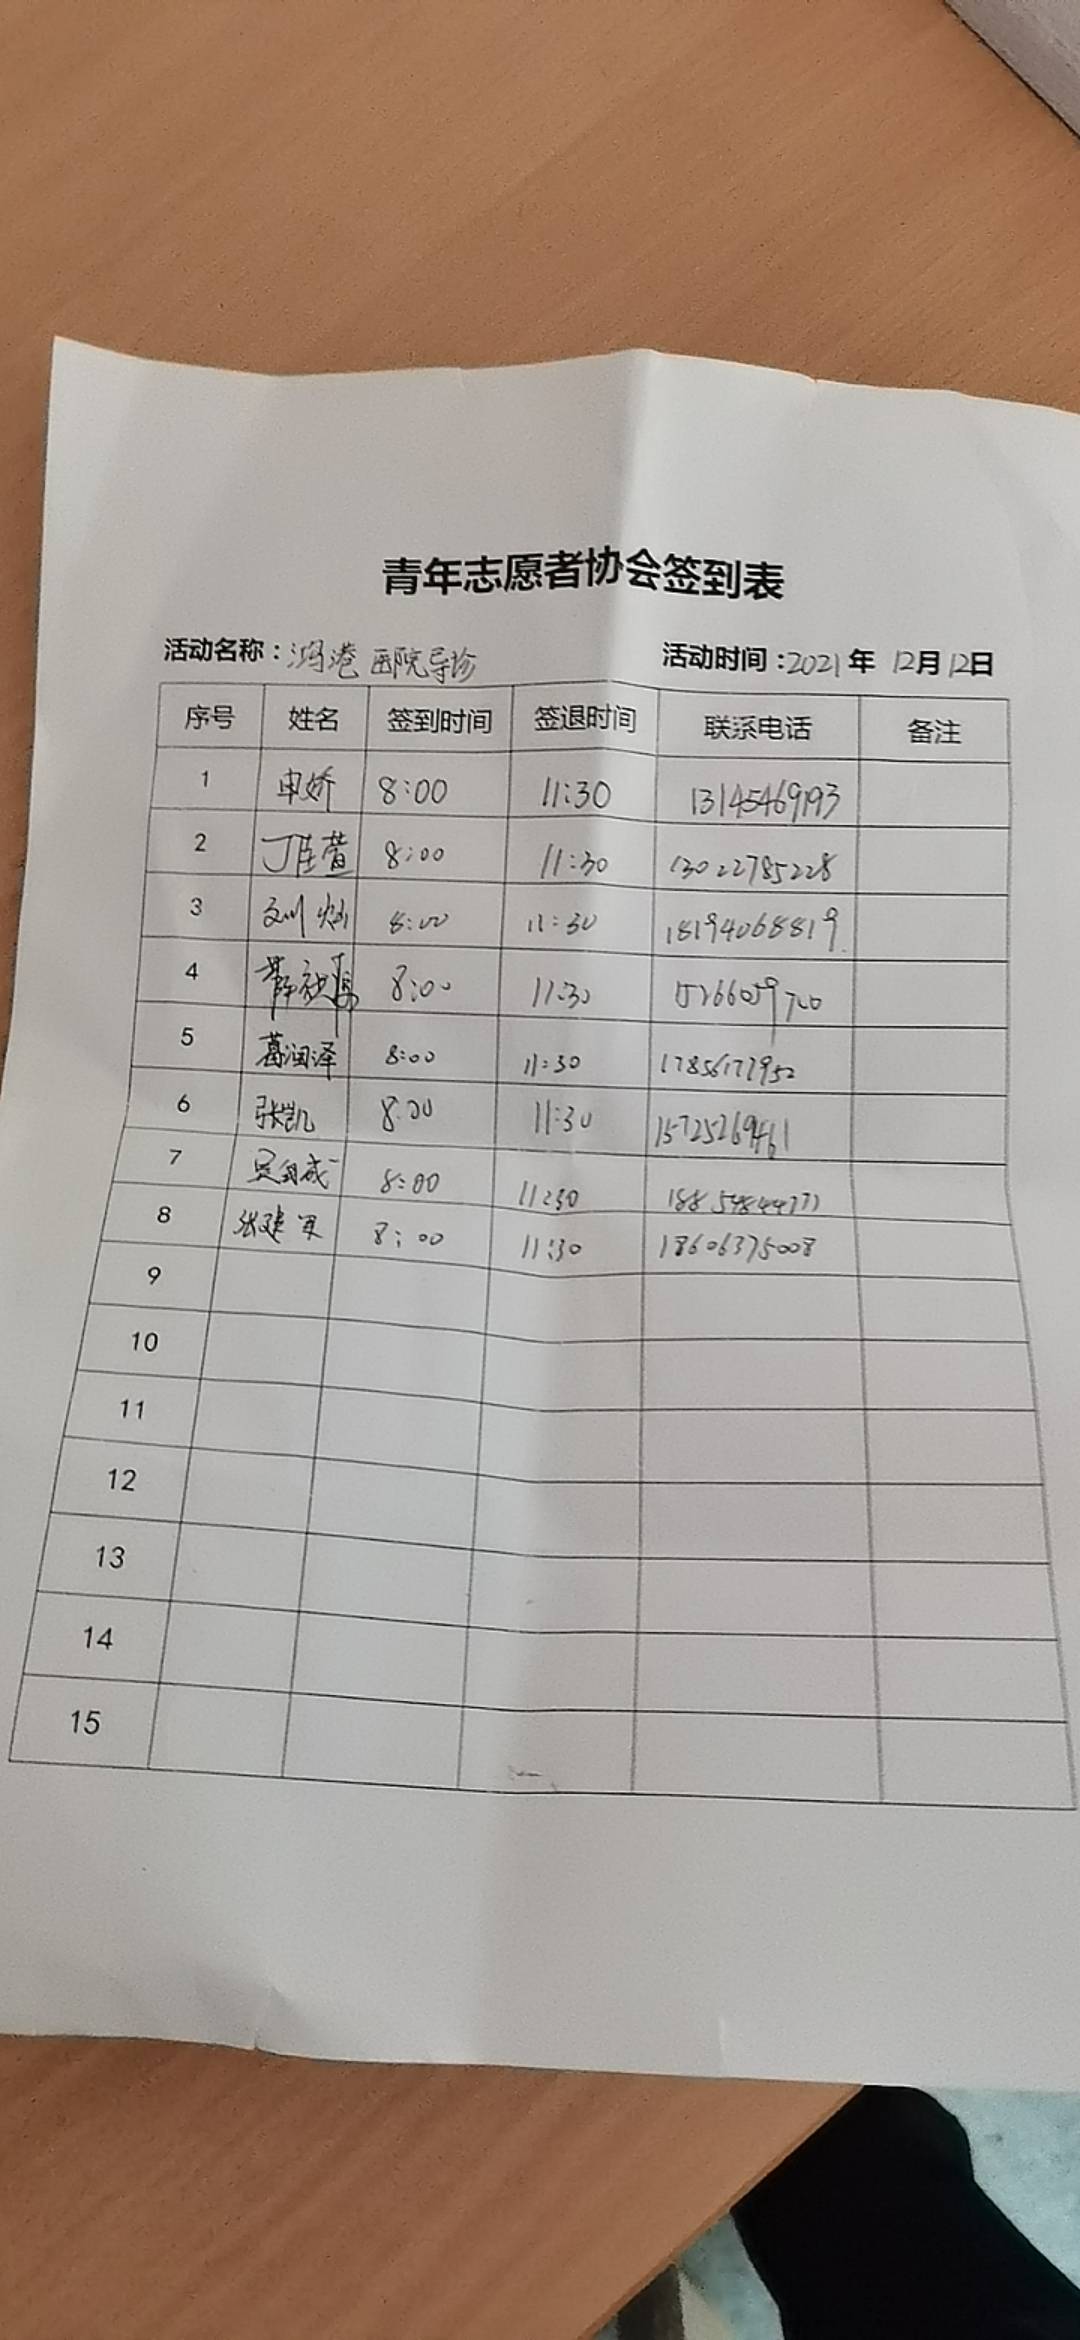 青年志愿者协会签到表
活动名称：鸿港医院导诊 活动时间：2021年 12月12日
序号 姓名 签到时间 签退时间 联系电话 备注
1 申娇 8:00 11:30 13145469193
2 丁佳萱 8:00 11:30 13022785228
3 8:00 11:30 18194068819
4 8:00 11:30
5 葛润泽 8:00 11:30 17856177952
6 张凯 8:00 11:30 15725269461
7 8:00 11:30 18854844777
8 张建军 8:00 11:30 18606375008
9
10
11
12
13
14
15